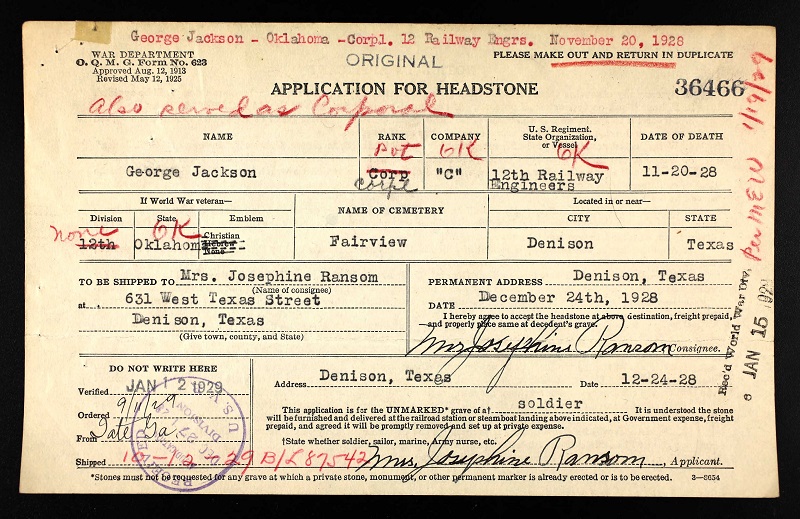 George Jackson - Oklahoma - Corpl. 12 Railway Engrs. November 20, 1928
WAR DEPARTMENT
O. Q. M. G. Form No. 623
Approved Aug. 12, 1913
Revised May 12, 1925
ORIGINAL
PLEASE MAKE OUT AND RETURN IN DUPLICATE
APPLICATION FOR HEADSTONE
36466
Also served as Corporal
NAME
RANK
COMPANY
U. S. Regiment, State Organization, or Vessel
DATE OF DEATH
Pvt
OK
OK
George Jackson
Corp
"C"
12th Railway Engineers
11-20-28
corpl
If World War veteran—
NAME OF CEMETERY
Located in or near—
Division
State
Emblem
CITY
STATE
None
OK
12th
Oklahoma
Christian
Hebrew
None
Fairview
Denison
Texas
TO BE SHIPPED TO Mrs. Josephine Ransom
(Name of consignee)
at 631 West Texas Street
Denison, Texas
(Give town, county, and State)
PERMANENT ADDRESS Denison, Texas
DATE December 24th, 1928
I hereby agree to accept the headstone at above destination, freight prepaid,
and properly place same at decedent's grave.
Mrs Josephine Ransom Consignee.
DO NOT WRITE HERE
Verified JAN 12 1929
Ordered 9/1/29
From Tate Ga
Shipped 10-12-29 B/L 87542
Address Denison, Texas Date 12-24-28
This application is for the UNMARKED* grave of a† soldier It is understood the stone
will be furnished and delivered at the railroad station or steamboat landing above indicated, at Government expense, freight
prepaid, and agreed it will be promptly removed and set up at private expense.
†State whether soldier, sailor, marine, Army nurse, etc.
Mrs. Josephine Ransom, Applicant.
*Stones must not be requested for any grave at which a private stone, monument, or other permanent marker is already erected or is to be erected.
3—3654
Rec'd World War Div.
JAN 15